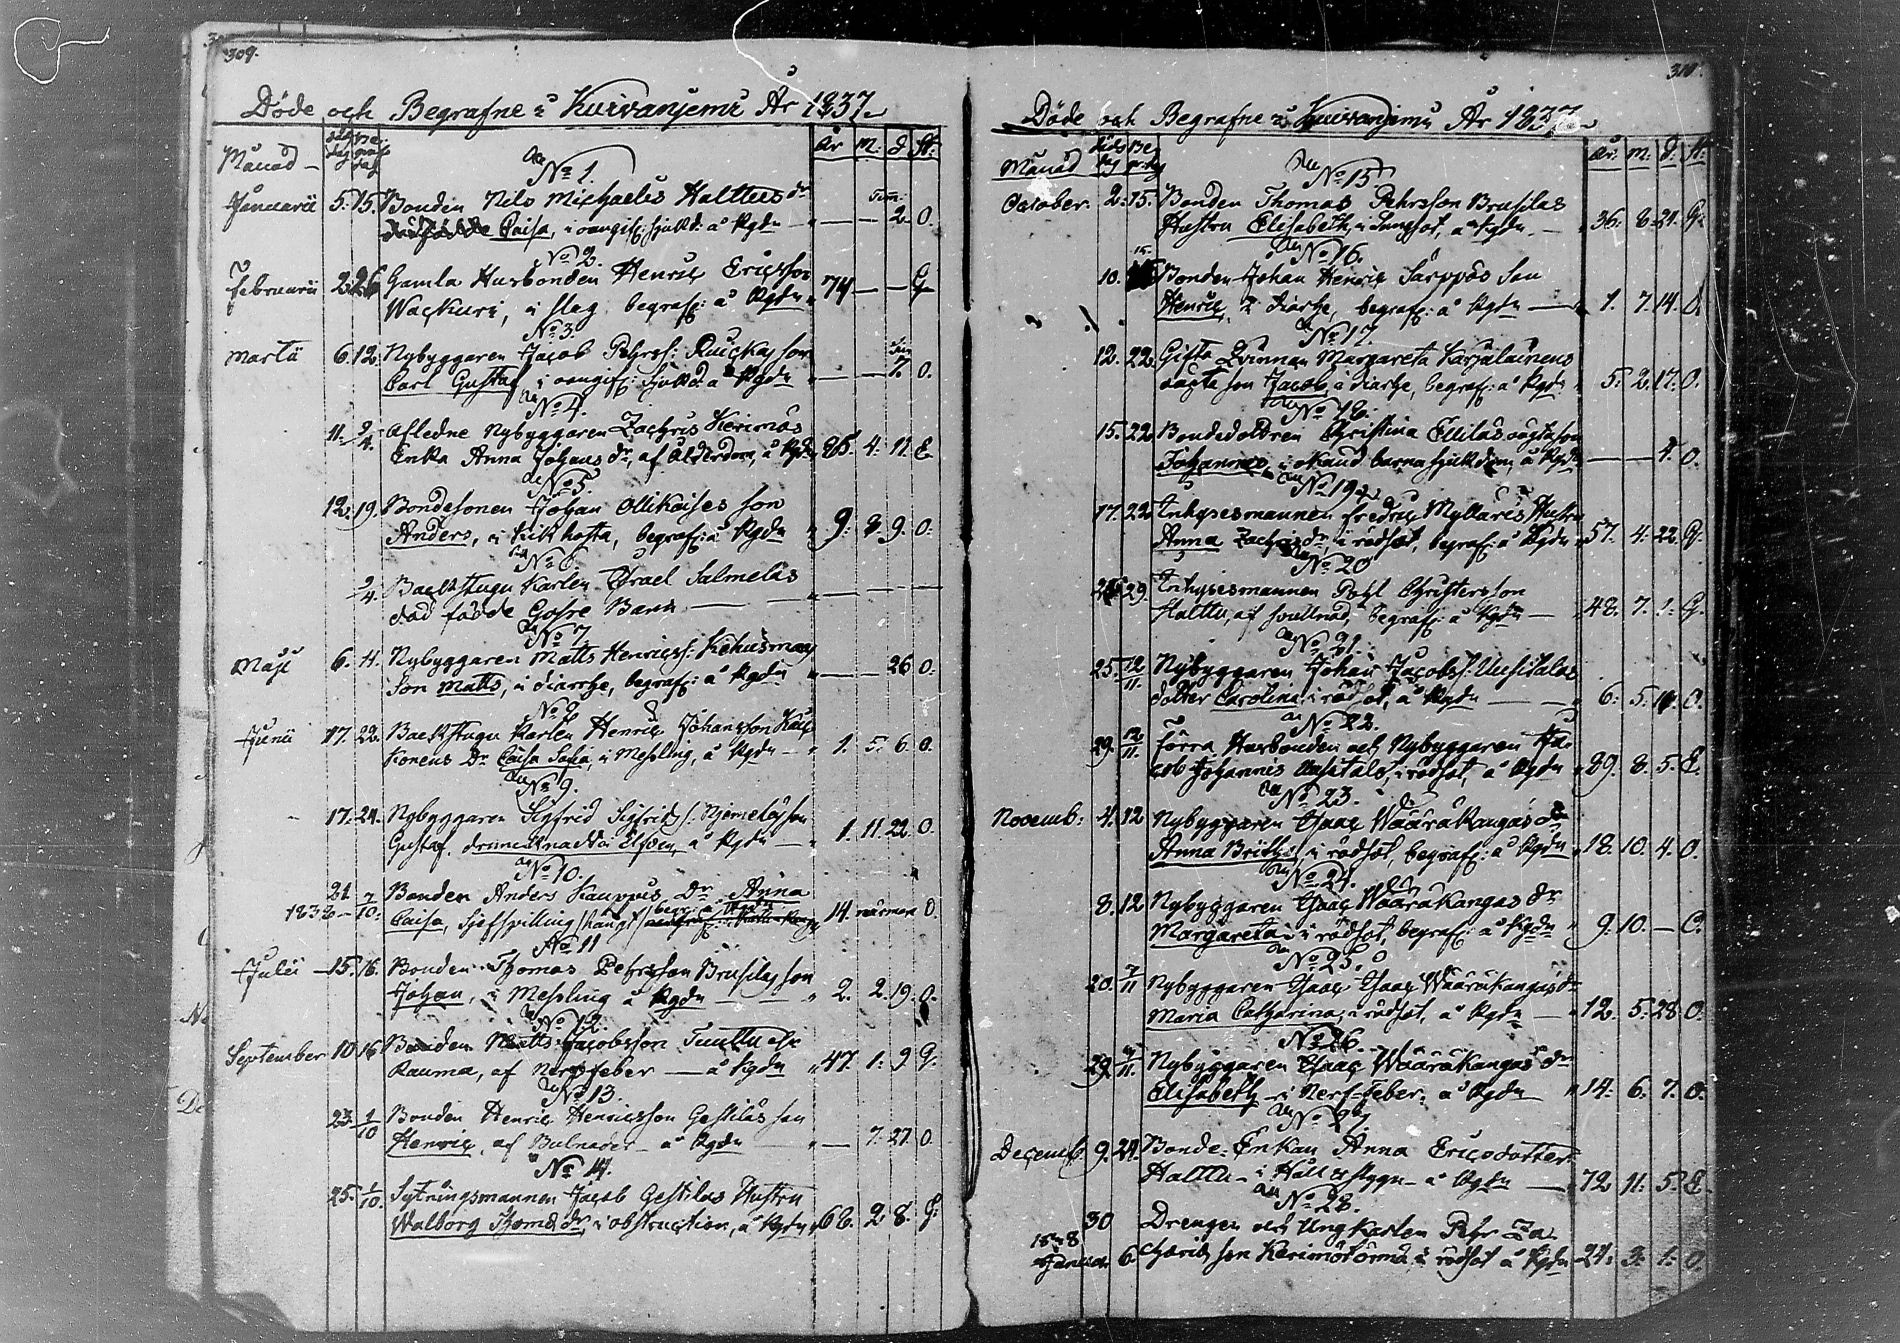 309.
Döde och Begrafne i Kuivaniemi År 1837
Månad
År M. d. St:
No 1.
Januarii 5. 15. Bonden Nils Michaelis Halttus dr
Caisa, i oangif: sjukd: å Kgdn — — 2. O.
No 2.
Februarii 2 26 Gamla Husbonden Henric Ericsson
Wackuri, i slag, begraf: å Kgdn 74 — — G
No 3.
Martii 6. 12. Nybyggaren Jacob Pehrss: Ruickas son
Carl Gustaf, i oangif: sjukd: å Kgdn — — 7. O.
No 4.
11. 2/4. Afledne Nybyggaren Zachris Kerimäs
Enka Anna Johans dr, af Ålderdom, å Kgdn 86. 4. 11. E.
No 5.
12. 19. Bondesonen Johan Ollikaises son
Anders, i kikhosta, begraf: å Kgdn 9. 8. 9. O.
No 6.
2/4. Backstugu Karlen Israel Salmelas
död födde Gosse Barn — — — —
No 7.
Maji 6. 11. Nybyggaren Matts Henricss: Kehusmaa
Son Matts, i diarrhe, begraf: å Kgdn — — 26 O.
No 8.
Junii 17. 22. Backstugu Karlen Henric Johansson Kaic
konens Dr Caisa Sofia, i Messling, å Kgdn 1. 5. 6. O.
No 9.
17. 24. Nybyggaren Sigfrid Sigfrids s: Njemeläs son
Gustaf, drunknad i Elfven, å Kgdn 1. 11. 22 O.
No 10.
21. Bonden Anders Kauppis Dr Anna
1838 7/10. Caisa, Sjelfspilling /hängt/ begr. å Kgdn 14. O.
No 11
Julii 15. 16. Bonden Thomas Pehrsson Brusilas son
Johan, i Messling å Kgdn 2. 2. 19. O.
No 12.
September 10 16 Bonden Matts Jacobsson Tuuttu elr
Rauma, af Nervfeber — å Kgdn 47. 1. 9 G.
No 13.
23. 1/10 Bonden Henric Henricsson Gestiläs son
Henric, af Bulnader — å Kgdn — 7. 27. O.
No 14.
25. 1/10. Sytningsmannen Jacob Gestilas Hustru
Walborg Thoms dr, i obstruction, å Kgdn 68. 2. 8. G.
310.
Döde och Begrafne i Kuivaniemi År 1837
Månad
År: M: d: St:
No 15
October. 2. 15. Bonden Thomas Pehrsson Brusilas
Hustru Elisabeth, i Lungsot, å Kgdn — 36. 8. 21. G.
No 16.
10. 15. Bonden Johan Henric Sarppos Son
Henric, i diarhe, begraf: å Kgdn — 1. 7. 14. O.
No 17.
12. 22. Gifta Qvinnan Margareta Karjalainens
oägta son Jacob, i diarhe, begraf: å Kgdn 5. 2. 17. O.
No 18.
15. 22 Bondedottren Christina Ellilas oägta son
Johannes, i okänd barnasjukdom, å Kgdn — — 4. O.
No 19.
17. 22 Inhysesmannen Fredric Myllaris Hustru
Anna Zachris dr, i rödsot, begraf: å Kgdn 57. 4. 22. G.
No 20
29. Inhysesmannen Pehl Christersson
Halttu, af svullnad, begraf: å Kgdn — 48. 7. 1. G.
No 21.
25. 12/11. Nybyggaren Johan Jacobs s. Uusitalos
dotter Carolina, i rödsot, å Kgdn — 6. 5. O.
No 22.
29. 12/11. Förra Husbonden och Nybyggaren Ja:
cob Johannis Uusitalo, i rödsot, å Kgdn 89. 8. 5. E.
No 23.
Novemb: 4. 12 Nybyggaren Isaac Wääräkangas dr
Anna Britha, i rödsot, begraf: å Kgdn 18. 10. 4. O.
No 24.
8. 12 Nybyggaren Isaac Wäärakangas dr
Margareta, i rödsot, begraf: å Kgdn 9. 10. — O.
No 25.
20. Nybyggaren Isaac Isaac Wäärakangas dr
Maria Catharina, i rödsot, å Kgdn — 12. 5. 28 O.
No 26.
29. Nybyggaren Isaac Wäärakangas dr
Elisabeth — i Nerf-feber, å Kgdn 14. 6. 7. O.
No 27.
Decemb. 9. 24. Bonde-Enkan Anna Ericsdotter
Halttu — i Håll & stygn — å Kgdn — 72 11. 5. E.
No 28.
30 Drengen och Ungkarlen Pehr Za:
1838
Januar 6. charias son Kerimö i rödsot å Kgdn 24. 3. 1. O.